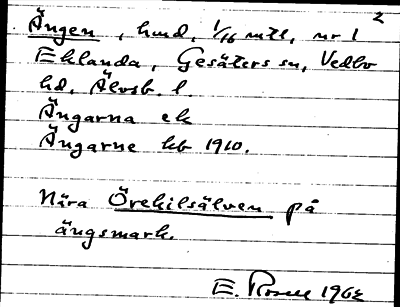 2
Ängen, hmd, 1/16 mtl, nr 1
Ehlanda, Gesäters sn, Vedbo
hd, Älvsb. l.
Ängarna ek
Ängarne kb 1910.
Nära Örekilsälven på
ängsmark.
E. Rosell 1962